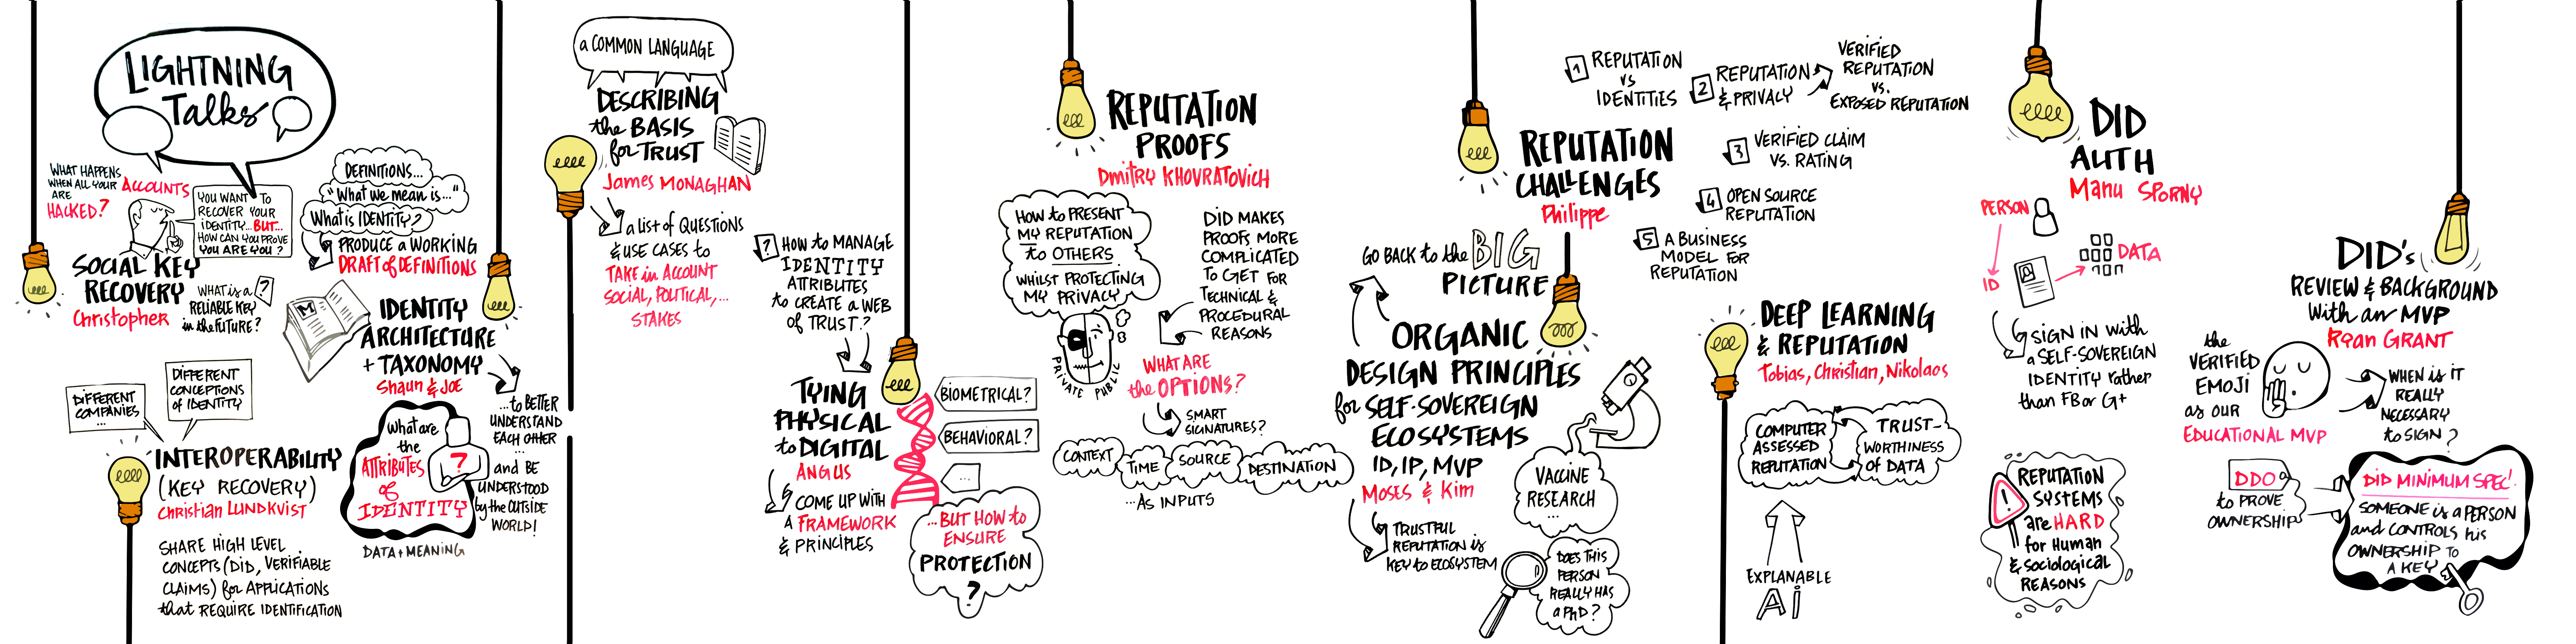 LIGHTNING
Talks
WHAT HAPPENS
WHEN ALL YOUR
ACCOUNTS
ARE
HACKED?
YOU WANT TO
RECOVER YOUR
IDENTITY... BUT...
HOW CAN YOU PROVE
YOU ARE YOU?
SOCIAL KEY
RECOVERY
Christopher
WHAT is a
RELIABLE KEY
in the FUTURE?
?
DEFINITIONS...
"What we mean is..."
What is IDENTITY?
PRODUCE a WORKING
DRAFT of DEFINITIONS
M
IDENTITY
ARCHITECTURE
+ TAXONOMY
Shaun & JOE
...to BETTER
UNDERSTAND
EACH OTHER
...
and BE
UNDERSTOOD
by the OUTSIDE
WORLD!
What are
the
ATTRIBUTES
of
IDENTITY
?
DATA + MEANING
DIFFERENT
COMPANIES
...
DIFFERENT
CONCEPTIONS
of IDENTITY
INTEROPERABILITY
(KEY RECOVERY)
Christian LUNDKVIST
SHARE HIGH LEVEL
CONCEPTS (DID, VERIFIABLE
CLAIMS) for APPLICATIONS
that REQUIRE IDENTIFICATION
a COMMON LANGUAGE
DESCRIBING
the BASIS
for TRUST
James MONAGHAN
a list of QUESTIONS
& USE CASES to
TAKE in ACCOUNT
SOCIAL, POLITICAL,...
STAKES
?
HOW to MANAGE
IDENTITY
ATTRIBUTES
to CREATE a WEB
of TRUST?
TYING
PHYSICAL
to DIGITAL
ANGUS
COME UP WITH
A FRAMEWORK
& PRINCIPLES
BIOMETRICAL?
BEHAVIORAL?
...
...BUT HOW to
ENSURE
PROTECTION
?
REPUTATION
PROOFS
Dmitry KHOVRATOVICH
HOW to PRESENT
MY REPUTATION
to OTHERS
WHILST PROTECTING
MY PRIVACY
PRIVATE PUBLIC
DID MAKES
PROOFS MORE
COMPLICATED
TO GET FOR
TECHNICAL &
PROCEDURAL
REASONS
WHAT ARE
the OPTIONS?
SMART
SIGNATURES?
CONTEXT
TIME
SOURCE
DESTINATION
...AS INPUTS
REPUTATION
CHALLENGES
Philippe
1 REPUTATION
vs
IDENTITIES
2 REPUTATION
& PRIVACY
VERIFIED
REPUTATION
vs.
EXPOSED REPUTATION
3 VERIFIED CLAIM
VS. RATING
4 OPEN SOURCE
REPUTATION
5 A BUSINESS
MODEL FOR
REPUTATION
GO BACK to the BIG
PICTURE
ORGANIC
DESIGN PRINCIPLES
for SELF-SOVEREIGN
ECOSYSTEMS
ID, IP, MVP
Moses & Kim
TRUSTFUL
REPUTATION is
KEY to ECOSYSTEM
VACCINE
RESEARCH
...
DOES THIS
PERSON
REALLY HAS
a PhD?
DEEP LEARNING
& REPUTATION
Tobias, Christian, Nikolaos
COMPUTER
ASSESSED
REPUTATION
TRUST-
WORTHINESS
OF DATA
EXPLANABLE
Ai
DID
AUTH
Manu SPORNY
PERSON
ID
DATA
SIGN IN with
a SELF-SOVEREIGN
IDENTITY rather
than FB or G+
!
REPUTATION
SYSTEMS
are HARD
for Human
& Sociological
REASONS
DID's
REVIEW & BACKGROUND
With an MVP
Ryan GRANT
the
VERIFIED
EMOJI
as our
EDUCATIONAL MVP
WHEN is IT
REALLY
NECESSARY
to SIGN?
DDO
to PROVE
OWNERSHIP
DID MINIMUM SPEC!
SOMEONE is a PERSON
and CONTROLS his
OWNERSHIP TO
A KEY